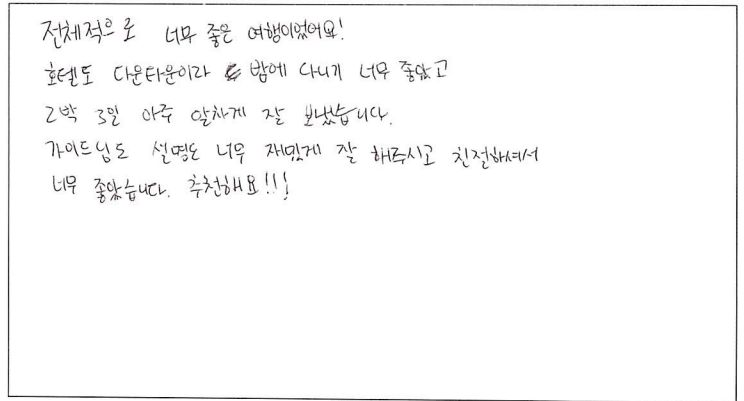 전체적으로 너무 좋은 여행이었어요!
호텔도 다운타운이라 밤에 다니기 너무 좋았고
2박 3일 아주 알차게 잘 보냈습니다.
가이드님도 설명도 너무 재밌게 잘 해주시고 친절하셔서
너무 좋았습니다. 추천해요!!!